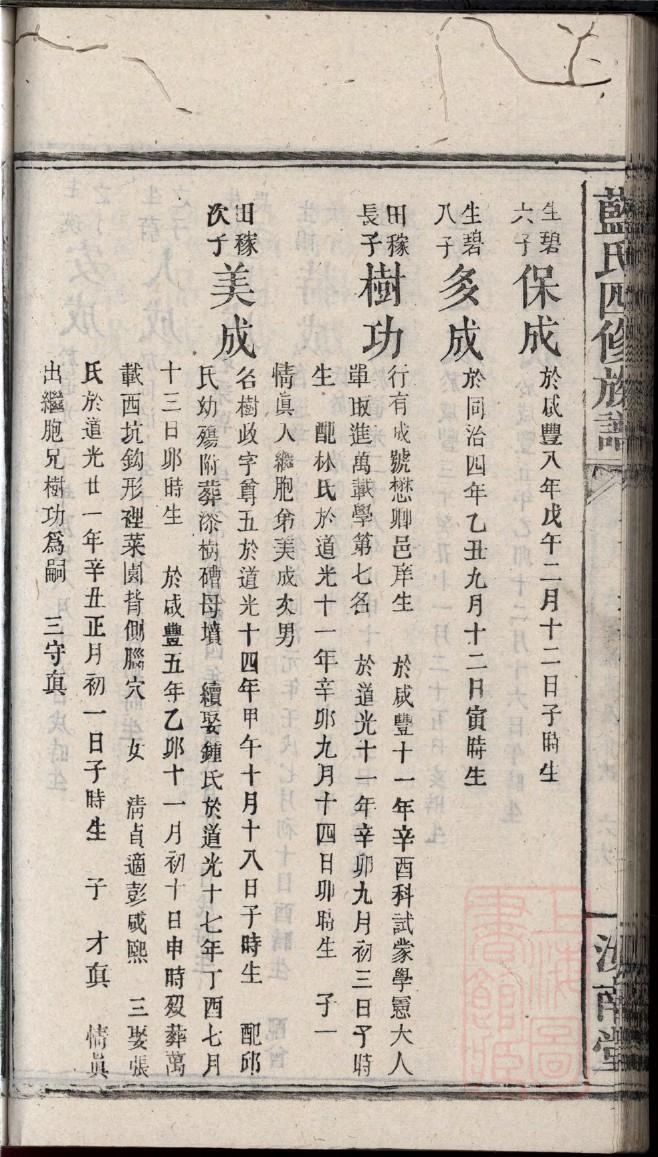 藍氏四修族譜
汝南堂
生碧六子 保成 於咸豐八年戊午二月十二日子時生
生碧八子 多成 於同治四年乙丑九月十二日寅時生
田稼長子 樹功 行有成號懋卿邑庠生 於咸豐十一年辛酉科試蒙學憲大人
單取進萬載學第七名 於道光十一年辛卯九月初三日子時
生 配林氏於道光十一年辛卯九月十四日卯時生 子一
情眞人繼胞弟美成次男
田稼次子 美成 名樹政字尊五於道光十四年甲午十月十八日子時生 配邱
氏幼殤附葬漆樹磄母墳 續娶鍾氏於道光十七年丁酉七月
十三日卯時生 於咸豐五年乙卯十一月初十日申時歿葬萬
載西坑鈎形裡菜園背側腦穴 女 清貞適彭咸熙 三娶張
氏於道光廿一年辛丑正月初一日子時生 子 才眞 情眞
出繼胞兄樹功爲嗣 三守眞
上海圖書館藏